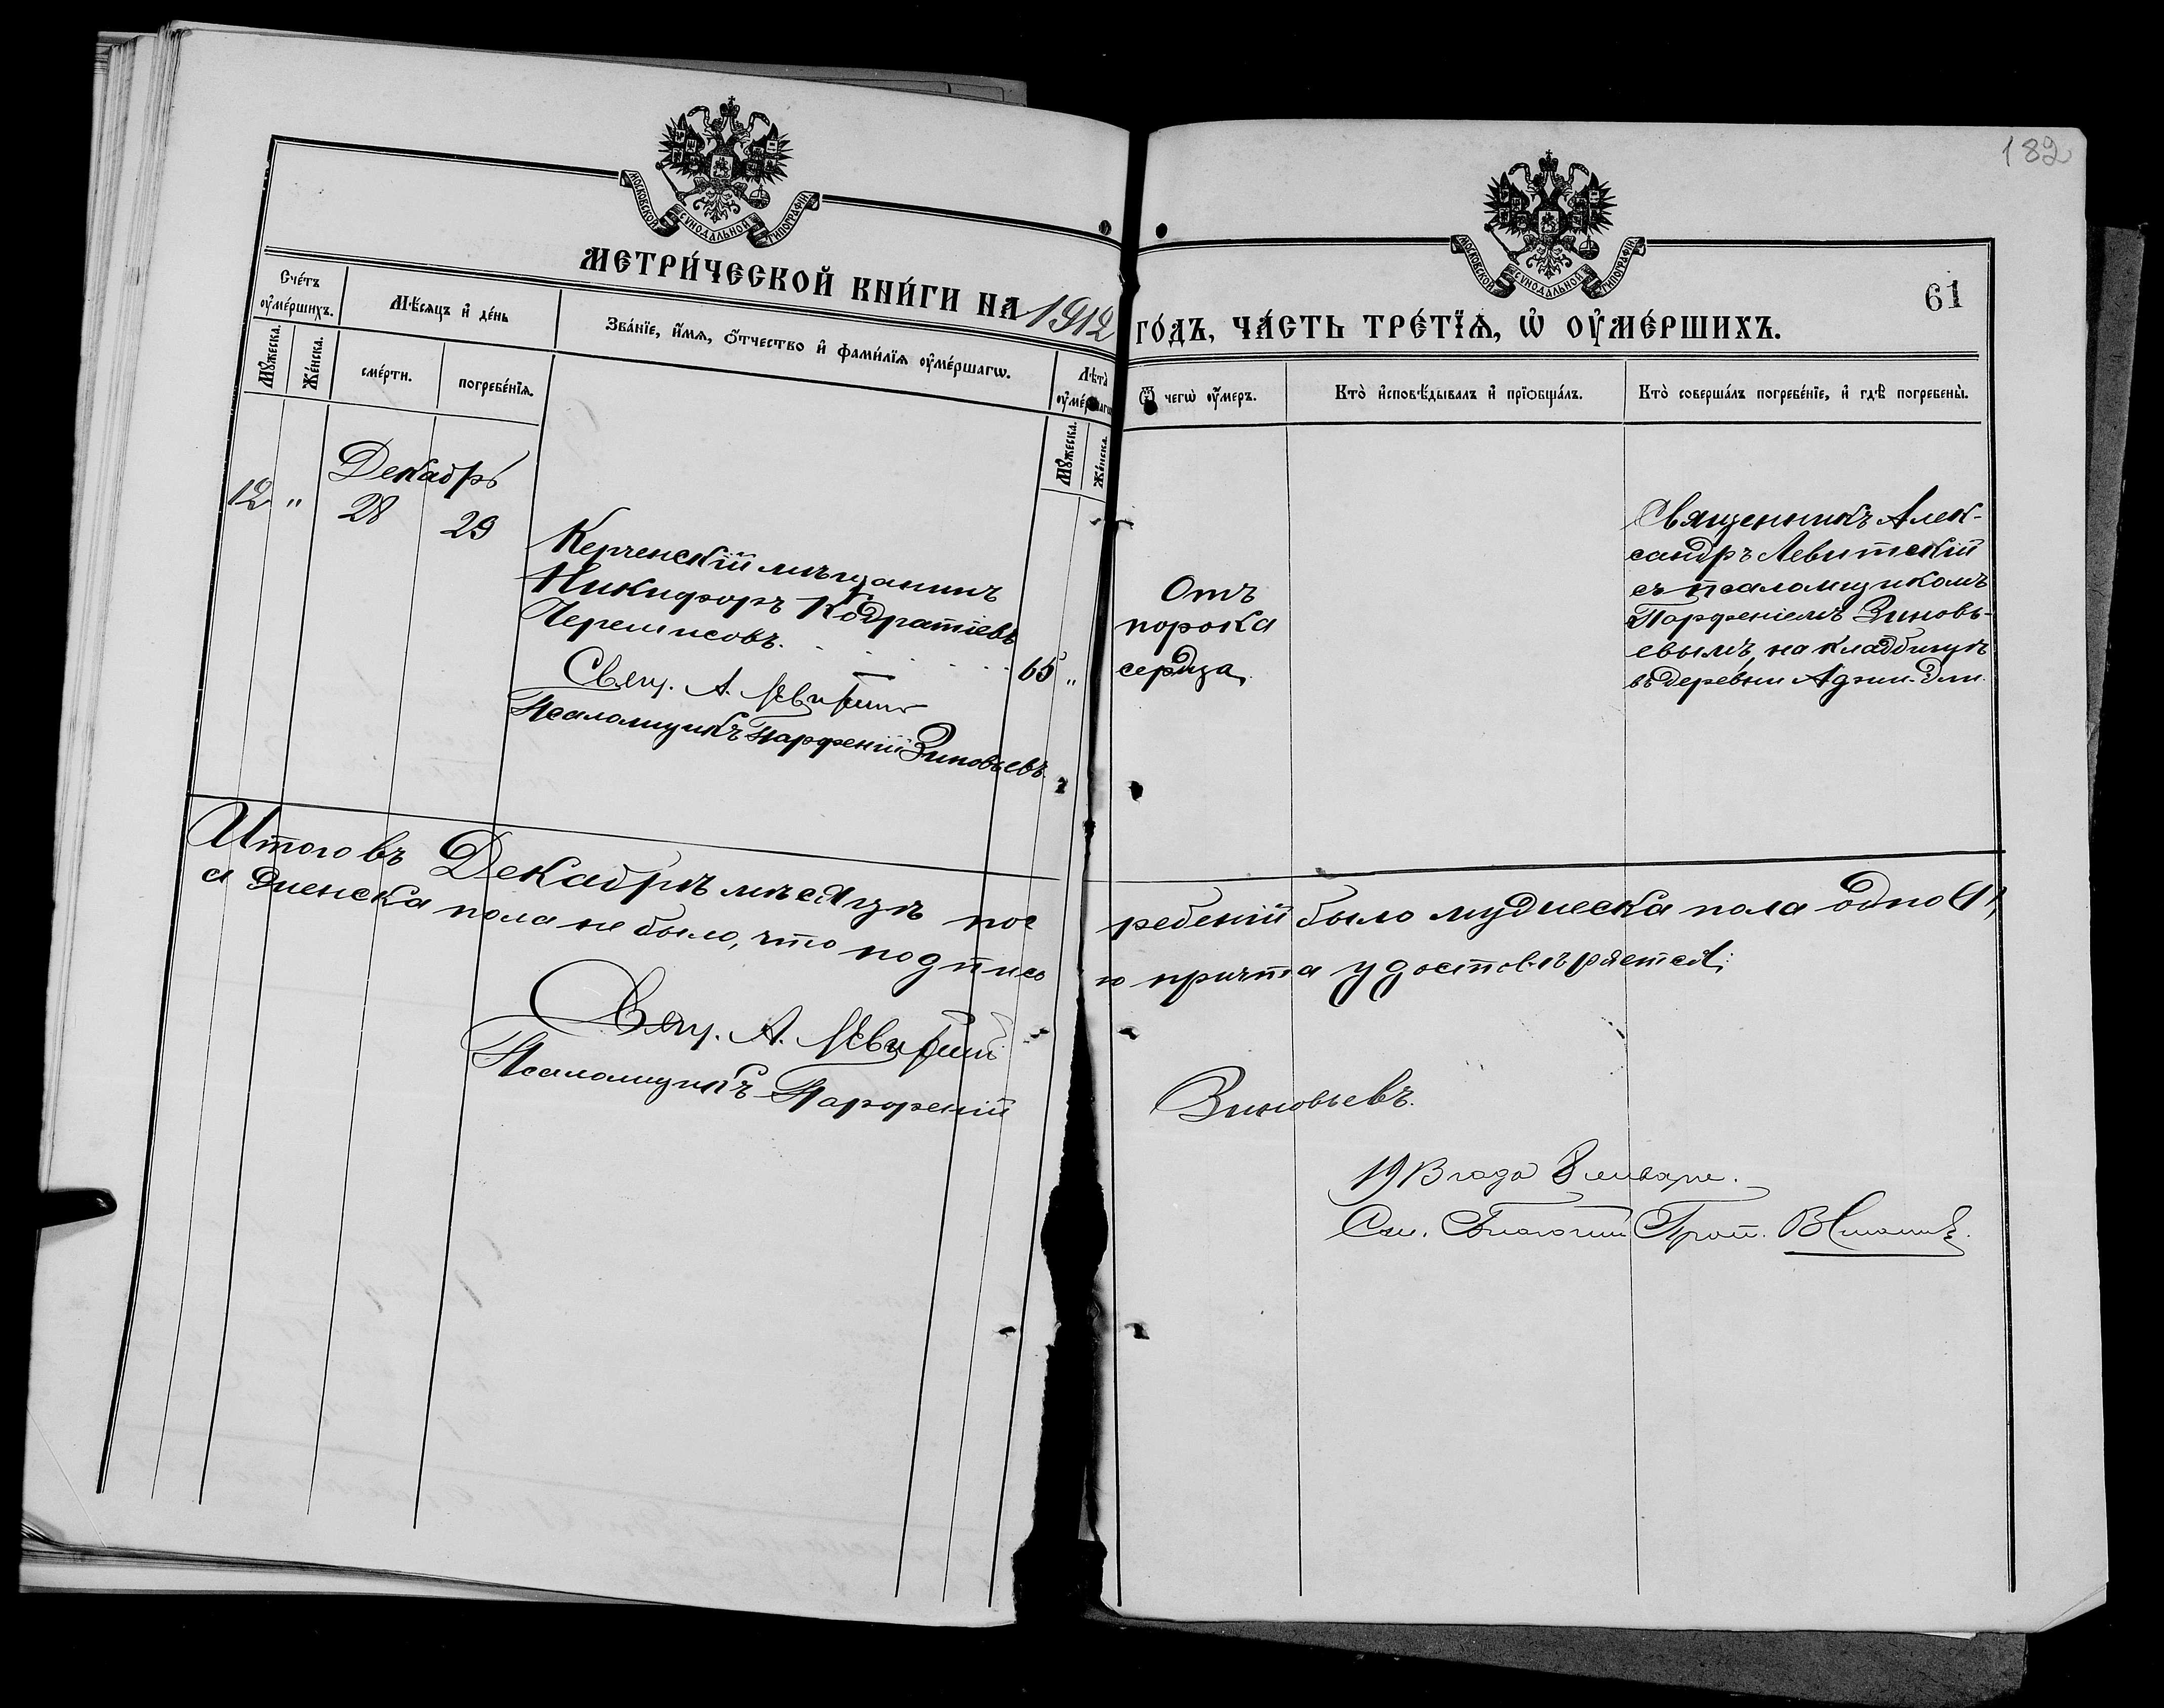 182
МОСКОВСКОЙ СѴНОДАЛЬНОЙ ТИПОГРАФІИ
МОСКОВСКОЙ СѴНОДАЛЬНОЙ ТИПОГРАФІИ
61
МЕТРИ́ЧЕСКОЙ КНИ́ГИ НА 1912 ГО́ДЪ, ЧА́СТЬ ТРЕ́ТЇѦ, Ѽ ОУ҆МЕ́РШИХЪ.
Сче́тъ оу҆ме́ршихъ.
Мꙋ́жеска.
Же́нска.
Мѣ́сяцъ и҆ де́нь
сме́рти.
погребе́нїѧ.
Зва́нїе, и҆́мѧ, ѻ҆́тчество и҆ фами́лїѧ оу҆ме́ршагѡ.
Лѣ́та оу҆ме́ршагѡ
Мꙋ́жеска.
Же́нска.
Ѿ чегѡ̀ оу҆́меръ.
Кто̀ и҆сповѣ́дывалъ и҆ прїѡбща́лъ.
Кто̀ соверша́лъ погребе́нїе, и҆ гдѣ̀ погребены̀.
Декабрь
12 " 28 29
Керченскій мѣщанинъ
Никифоръ Кодратіевъ
Черемисовъ. 65 "
Свящ. А. Левитскій
Псаломщикъ Парфеній Зиновьевъ.
Отъ
порока
сердца,
Священникъ Алек-
сандръ Левитскій
съ псаломщикомъ
Парфеніемъ Зиновь-
евымъ, на кладбищѣ
въ деревни Аджи-Эли
Итого въ Декабрѣ мѣсяцѣ погребеній было мужеска пола одно (1),
а женска пола не было, что подписью причта удостовѣряется:
Свящ. А. Левитскій
Псаломщикъ Парфеній Зиновьевъ.
1913 года 8 января.
Благочин. Прот.